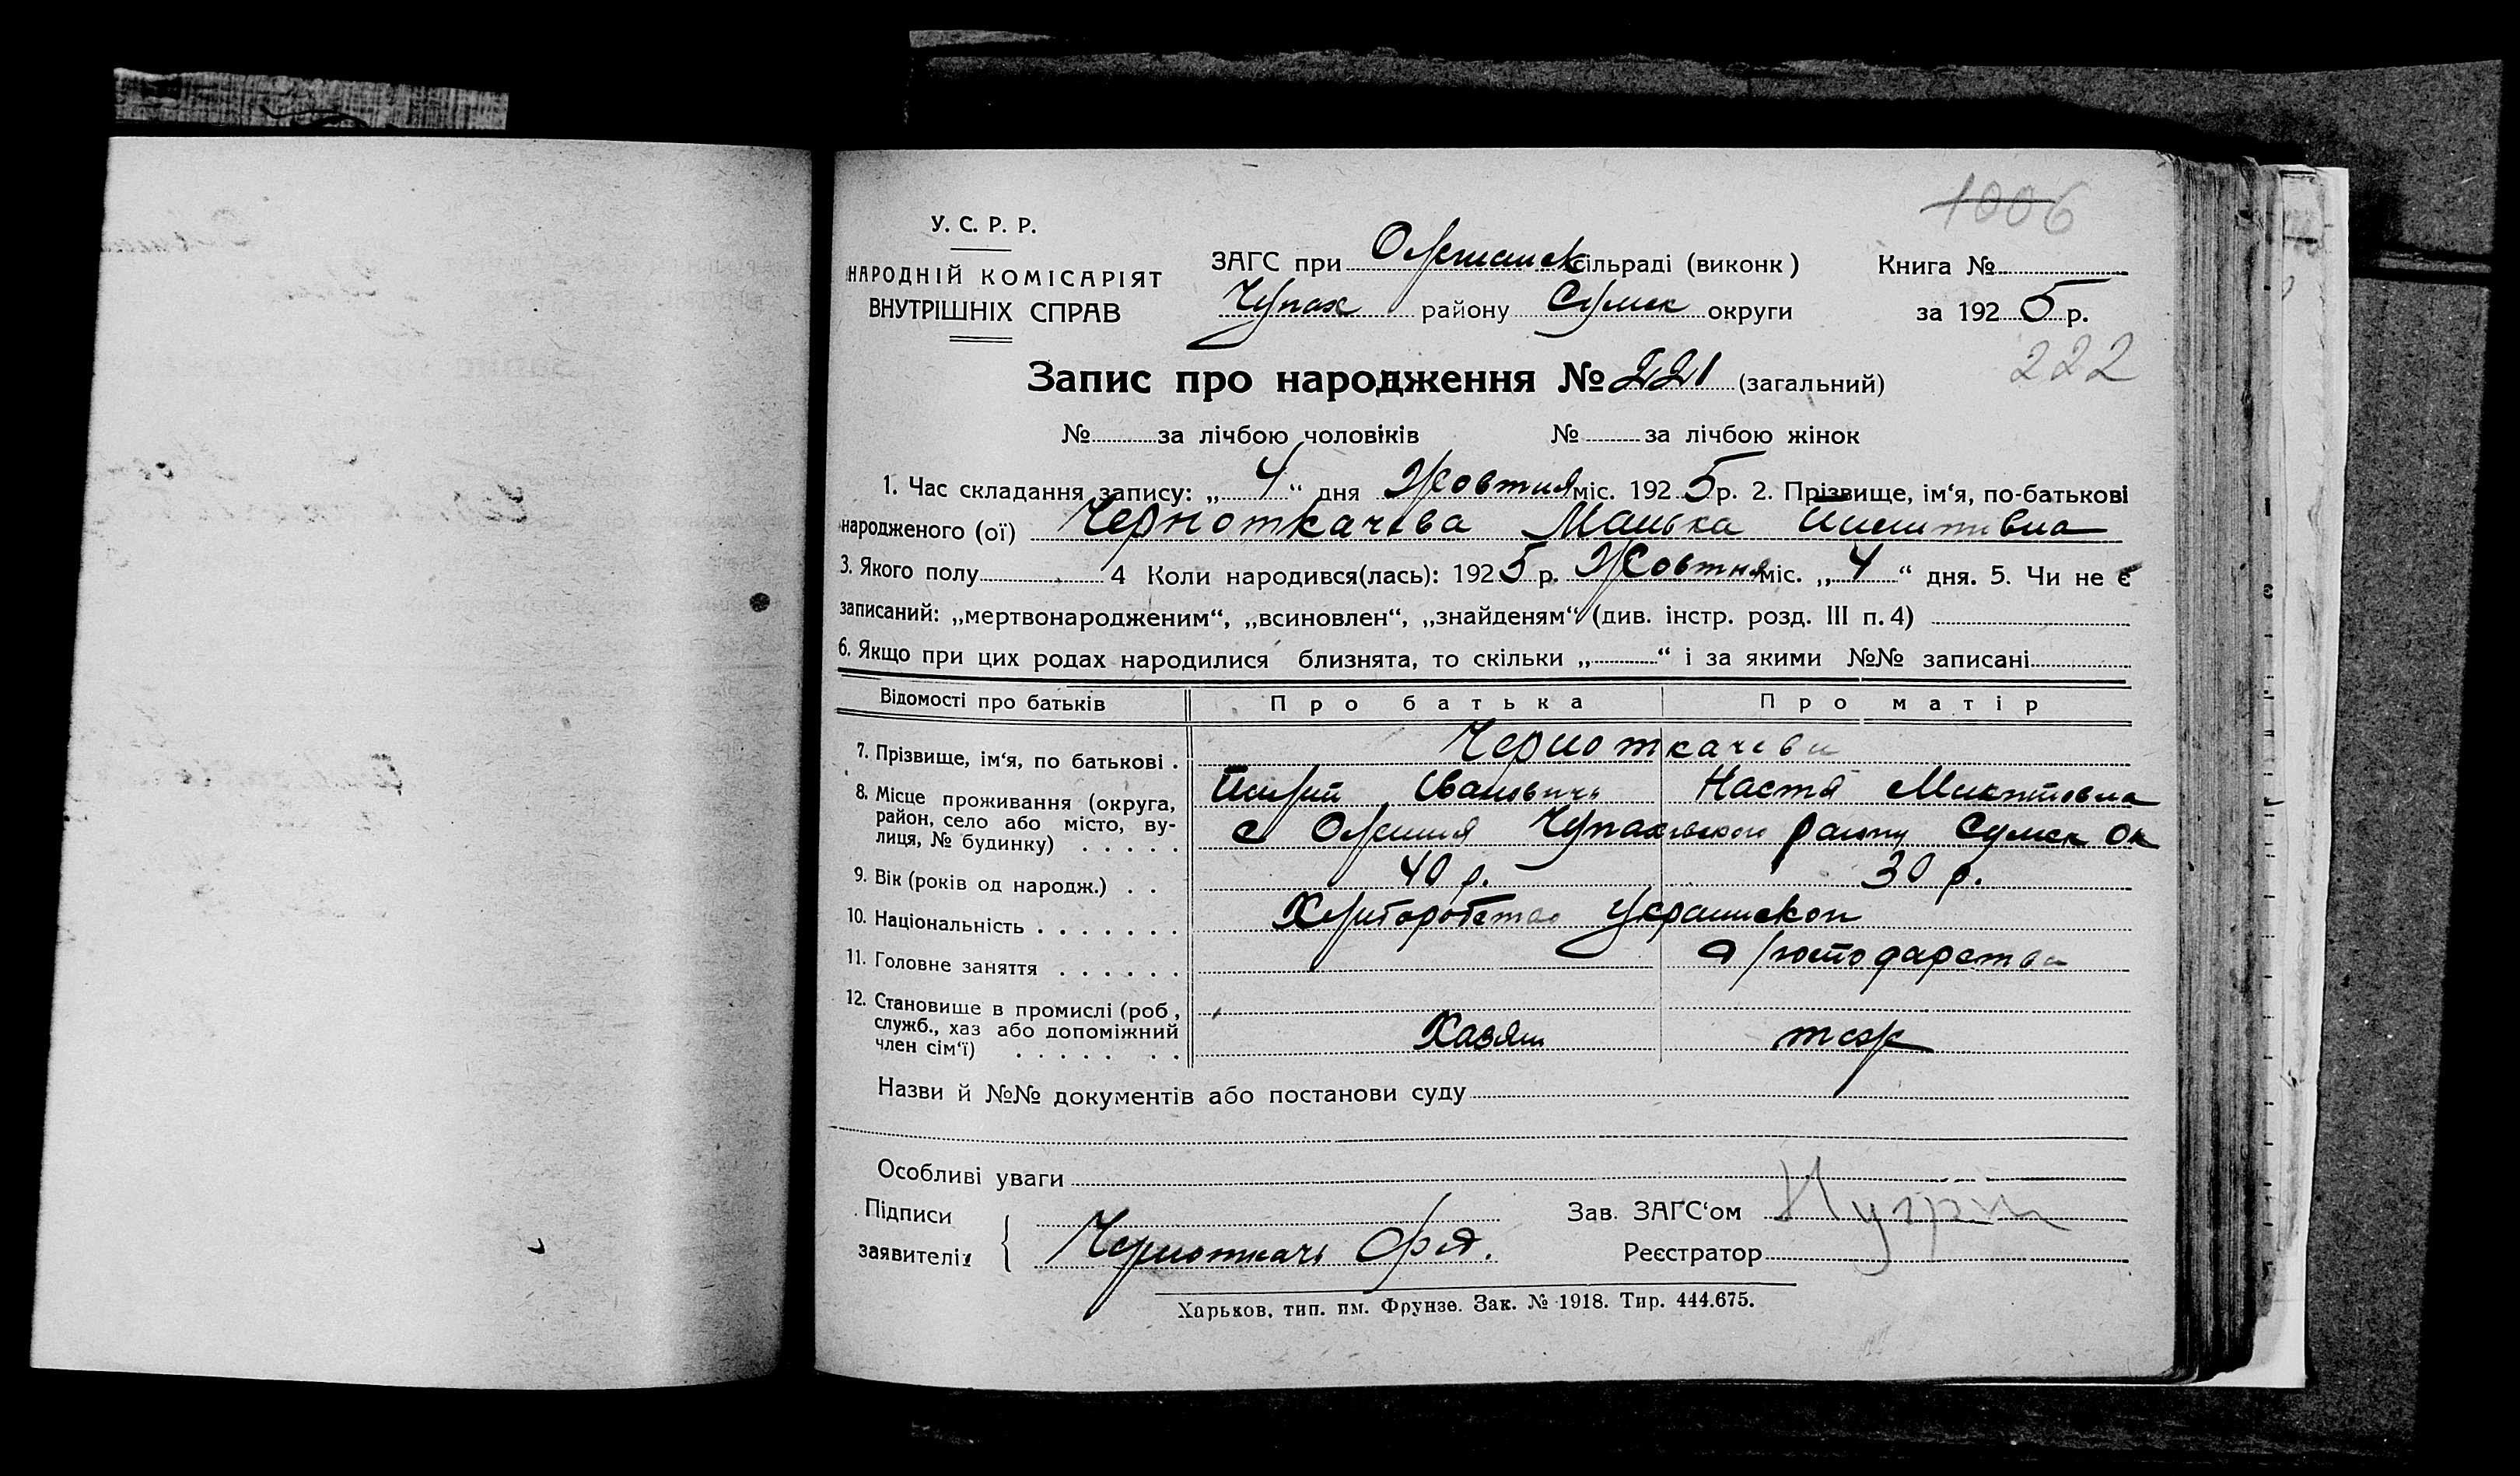 1006
У. С. Р. Р.
НАРОДНІЙ КОМІСАРІЯТ
ВНУТРІШНІХ СПРАВ
ЗАГС при Олешанск сільраді (виконк)
Чупах району Сумск округи
Книга №
за 1925 р.
222
Запис про народження № 221 (загальний)
№ за лічбою чоловіків № за лічбою жінок
1. Час складання запису: „ 4 “ дня Жовтня міс. 1925 р. 2. Прізвище, ім‘я, по-батькові
народженого (ої) Черноткачева Манька
3. Якого полу 4 Коли народився(лась): 1925 р. Жовтня міс. „ 4 “ дня. 5. Чи не є
записаний: „мертвонародженим“, „всиновлен“, „знайденям“ (див. інстр. розд. III п. 4)
6. Якщо при цих родах народилися близнята, то скільки „ “ і за якими №№ записані
Відомості про батьків Про батька Про матір
7. Прізвище, ім‘я, по батькові . Черноткачеви
Иванович Настя
8. Місце проживання (округа, район, село або місто, вулиця, № будинку) . . . . . с Олешня Чупаховского району Сумск ок
9. Вік (років од народж.) . . 40 р. 30 р.
10. Національність . . . . . . . Хліборобство Украинскоп
11. Головне заняття . . . . . .
12. Становище в промислі (роб, служб., хаз або допоміжний член сім‘ї) . . . . . . . Хазяин
Назви й №№ документів або постанови суду
Особливі уваги
Підписи
заявителів Черноткачь
Зав. ЗАГС‘ом
Реєстратор
Харьков, тип. им. Фрунзе. Зак. № 1918. Тир. 444.675.